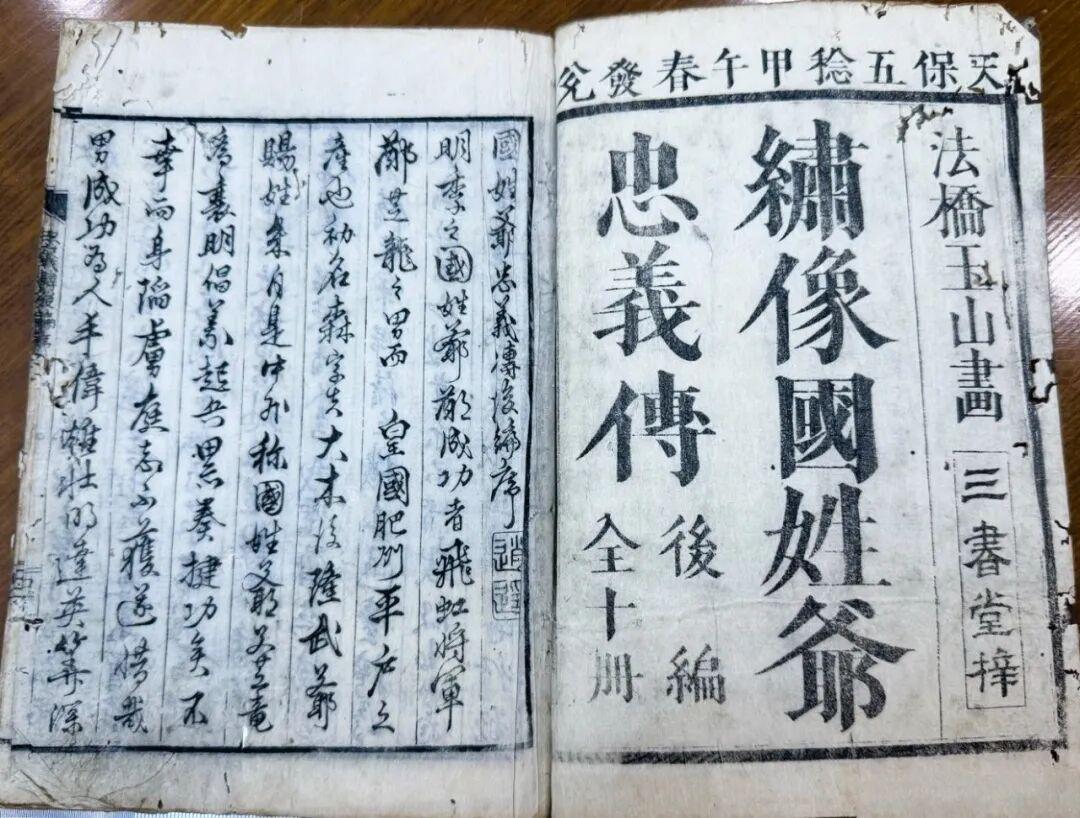 天保五稔甲午春發兌
法橋玉山畫 三書堂梓
繡像國姓爺
忠義傳
後編
全十冊
國姓爺忠義傳後編序
明季之國姓爺鄭成功者飛虹將軍
鄭芝龍之男而 皇國肥州平戶之
產也初名森字大木後隆武爺
賜姓朱自是中外称國姓爺父芝龍
明倡義起兵累奏捷功矣不
幸而身陷虜庭志不獲遂惜哉
男成功為人丰偉雄壮明達英筭深